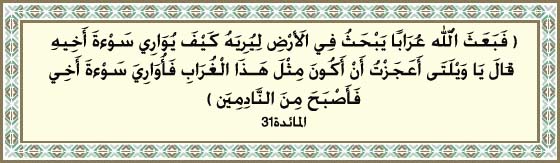 ( فَبَعَثَ اللّه غُرَابًا يَبْحَثُ فِي الأَرْضِ لِيُرِيَهُ كَيْفَ يُوَارِي سَوْءةَ أَخِيهِ
قَالَ يَا وَيْلَتَى أَعَجَزْتُ أَنْ أَكُونَ مِثْلَ هَذَا الْغُرَابِ فَأُوَارِيَ سَوْءةَ أَخِي
فَأَصْبَحَ مِنَ النَّادِمِيَن )
المائدة31